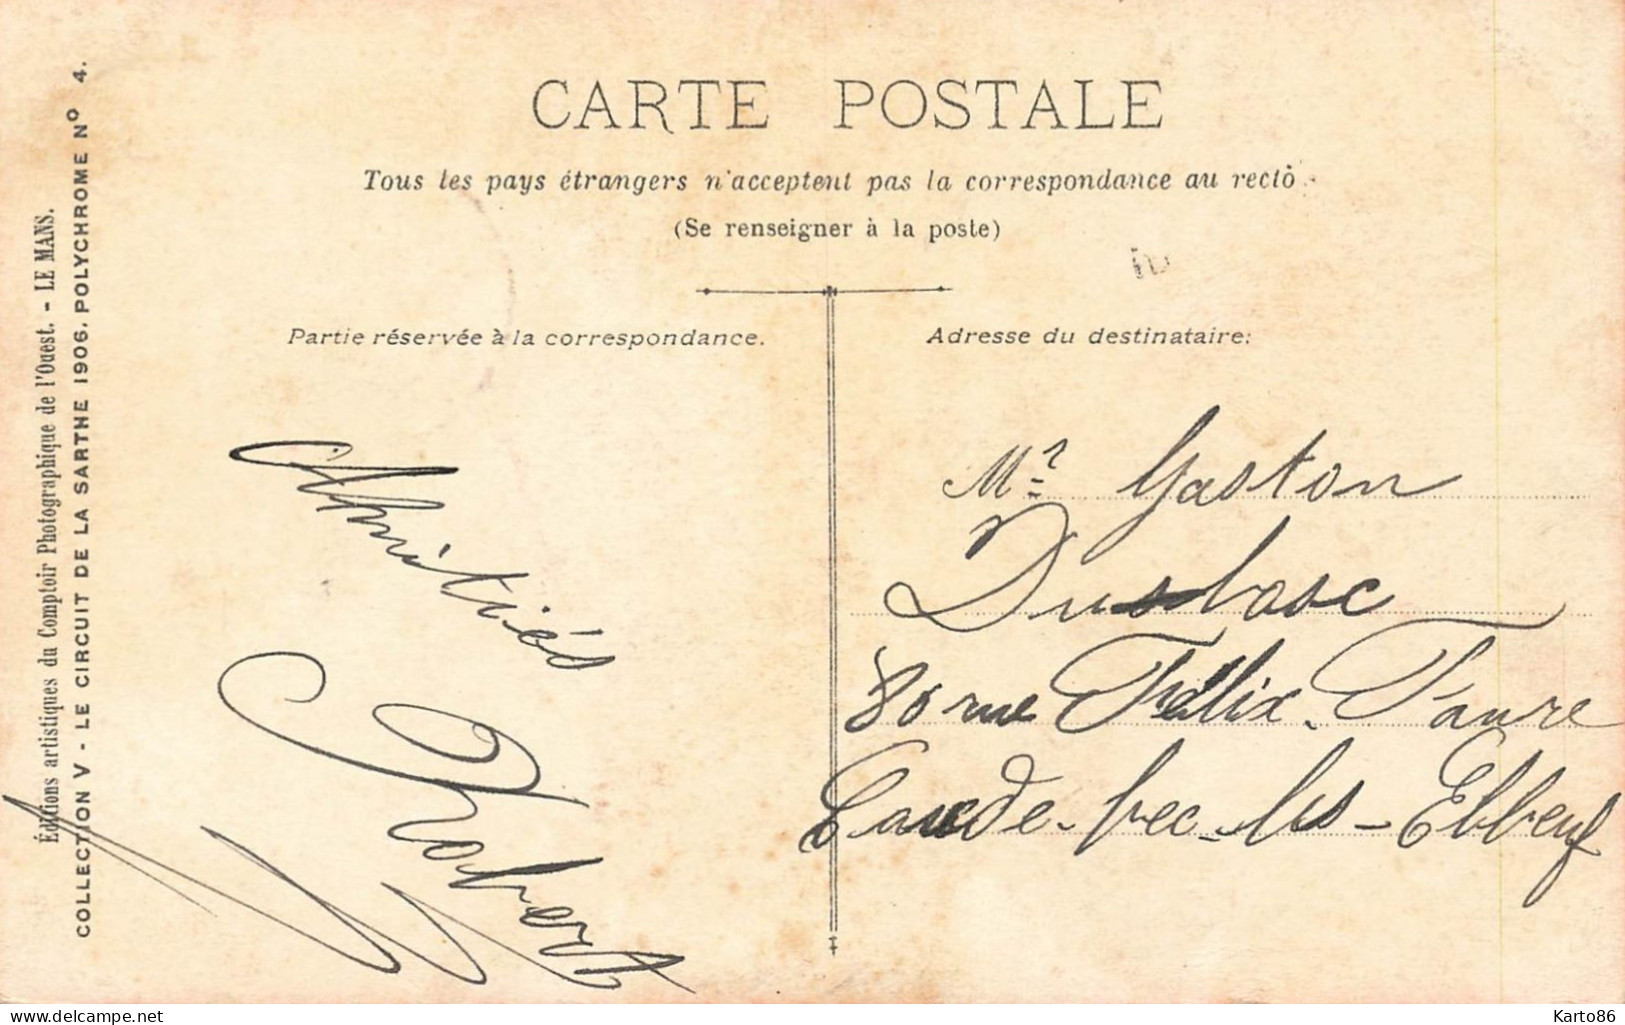 CARTE POSTALE
Tous les pays étrangers n'acceptent pas la correspondance au recto
(Se renseigner à la poste)
Éditions artistiques du Comptoir Photographique de l'Ouest. - LE MANS.
COLLECTION V - LE CIRCUIT DE LA SARTHE 1906. POLYCHROME Nº 4.
Partie réservée à la correspondance.
Amitiés
Robert
Adresse du destinataire:
Mr Gaston
Dusbosc
80 rue Félix Faure
Caudebec-les-Elbeuf
delcampe.net
Karto86